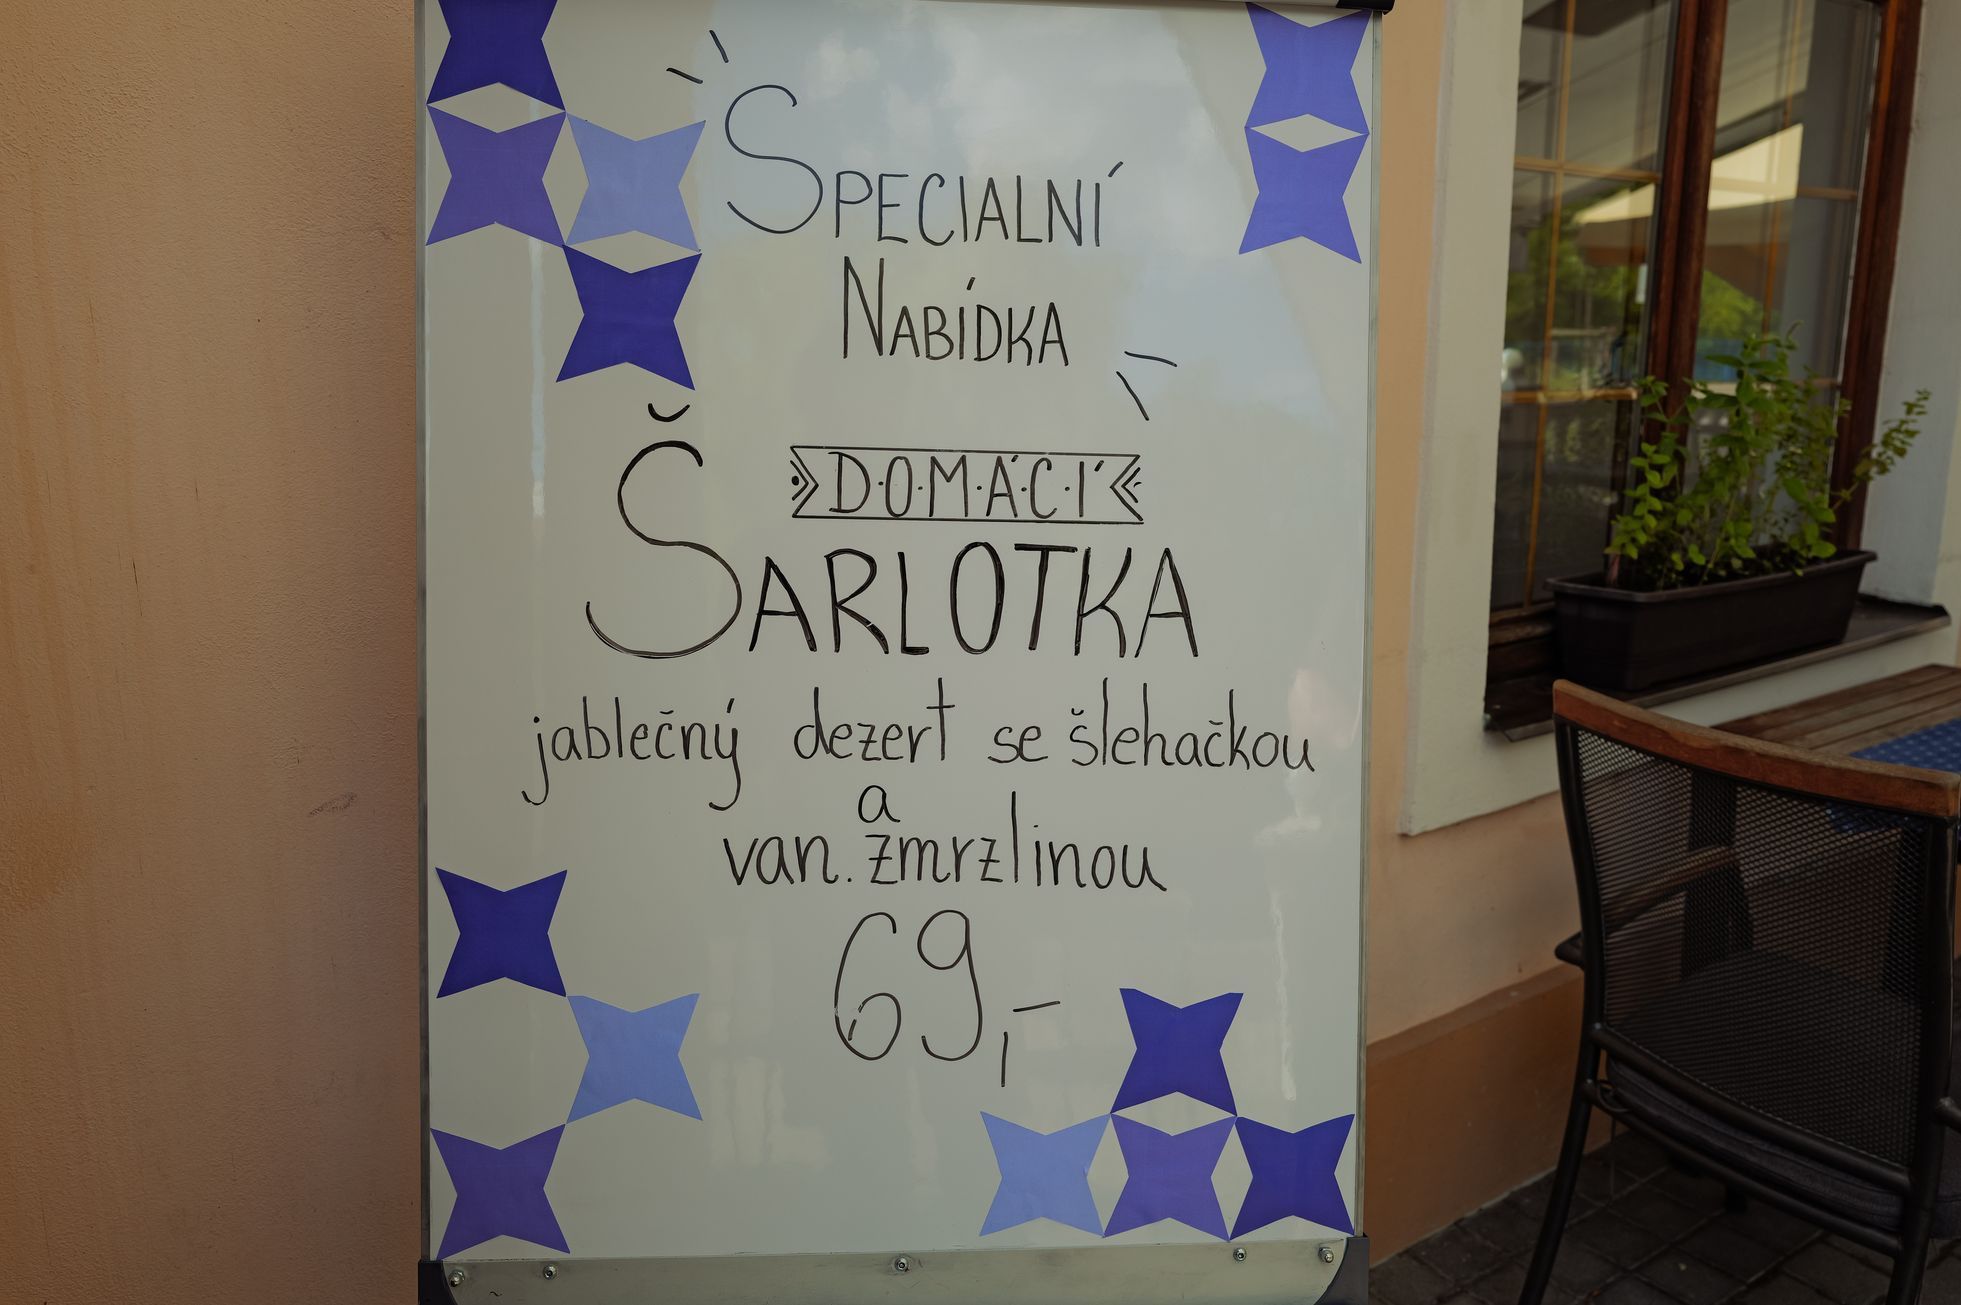 SPECIALNÍ
NABÍDKA
D·O·M·Á·C·Í
ŠARLOTKA
jablečný dezert se šlehačkou
a
van. zmrzlinou
69,-